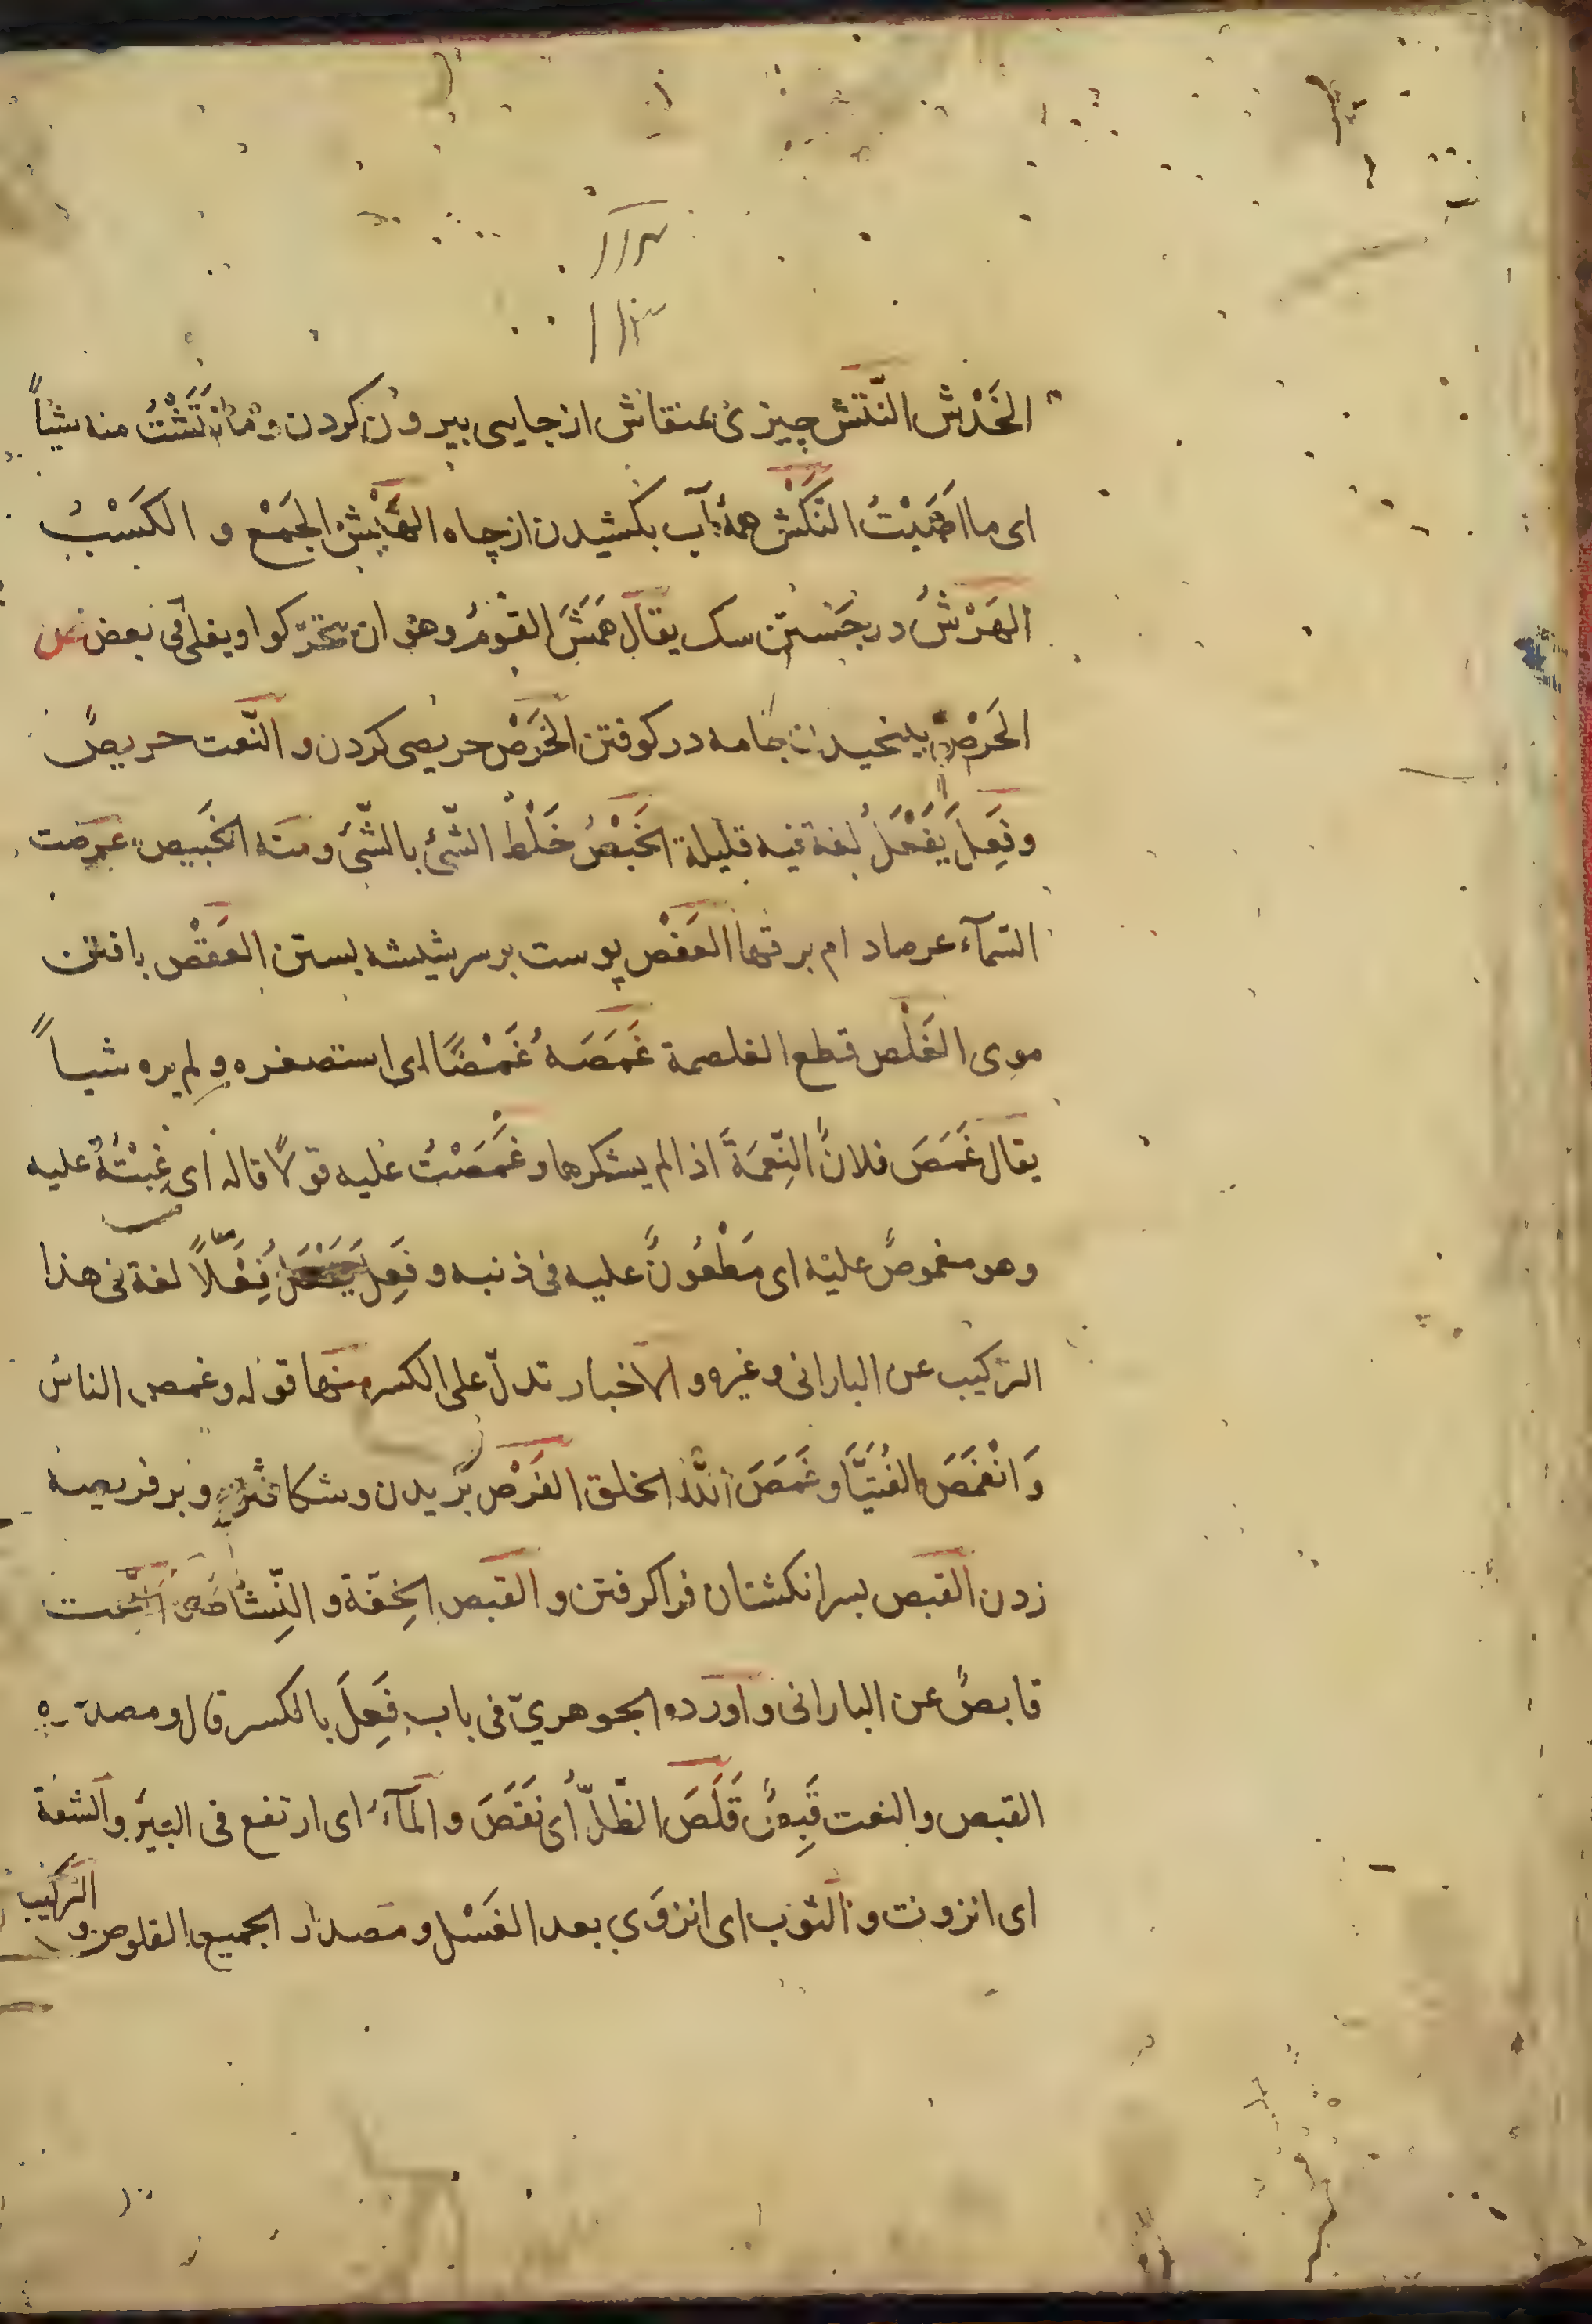 الخَدْش النّتش چیزی بمنقاش از جایی بیرون کردن و مَا نَتَشْتُ منه شیئاً
ای ما اصَبْتُ النَّکْش همه آب بکشیدن از چاه الهَبْش الجَمْع و الکَسْبُ
الهَرْشُ در جَستن سک یقال هَمَشَ القَومُ و هو ان تحرّکوا و یغلی فی بعض
الحَرْص جامه در کوفتن الحَرْص حریصی کردن و النّعت حریصٌ
و فَعِلَ یَفْعَلُ لغة فیه قلیلة الخَبْصُ خَلْطُ الشّئ بالشّئ و منه الخَبیص عرصت
السّمآء عرصا دام برقها العَفْص پوست بر سر شیشه بستن العَقْص بافتن
موی الغَلْص قطع الغلصمة غَمَصَهُ غَمْصًا ای استصغره و لم یره شیاً
یقال غَمَصَ فلانٌ النِّعمَةَ اذا لم یشکرها و غَمَصْتُ علیه قولًا قاله ای عِبْتُهُ علیه
و هو مغموصٌ علیْه ای مَطْعُونٌ علیه فی ذنبه و فَعِلَ یَفْعَلُ فَعْلاً لغة فی هذا
الترکیب عن البارانی و غیره و الاخبار تدلّ علی الکسر منها قوله و غمص الناسَ
وَ اتغْمَصَ الفُتیَّا و غمَصَ اللّٰهُ الخلق الفَرْص بُریدن و شکافتن و بر فریصه
زدن القبص بسر انکشتان فرا کرفتن و القبص الخِفّة و النّشاط و النّعت
قابصٌ عن البارانی و اورده الجوهریّ فی باب فَعِلَ بالکسر قال و مصدره
القبص و النعت قَبِصٌ قَلَصَ الظّلُّ أی نَقَصَ و المآءُ ای ارتفع فی البئر و الشفة
ای انزوت و الثوب ای انزوَی بعد الغَسْل و مصدر الجمیع القلوص و الترکیب